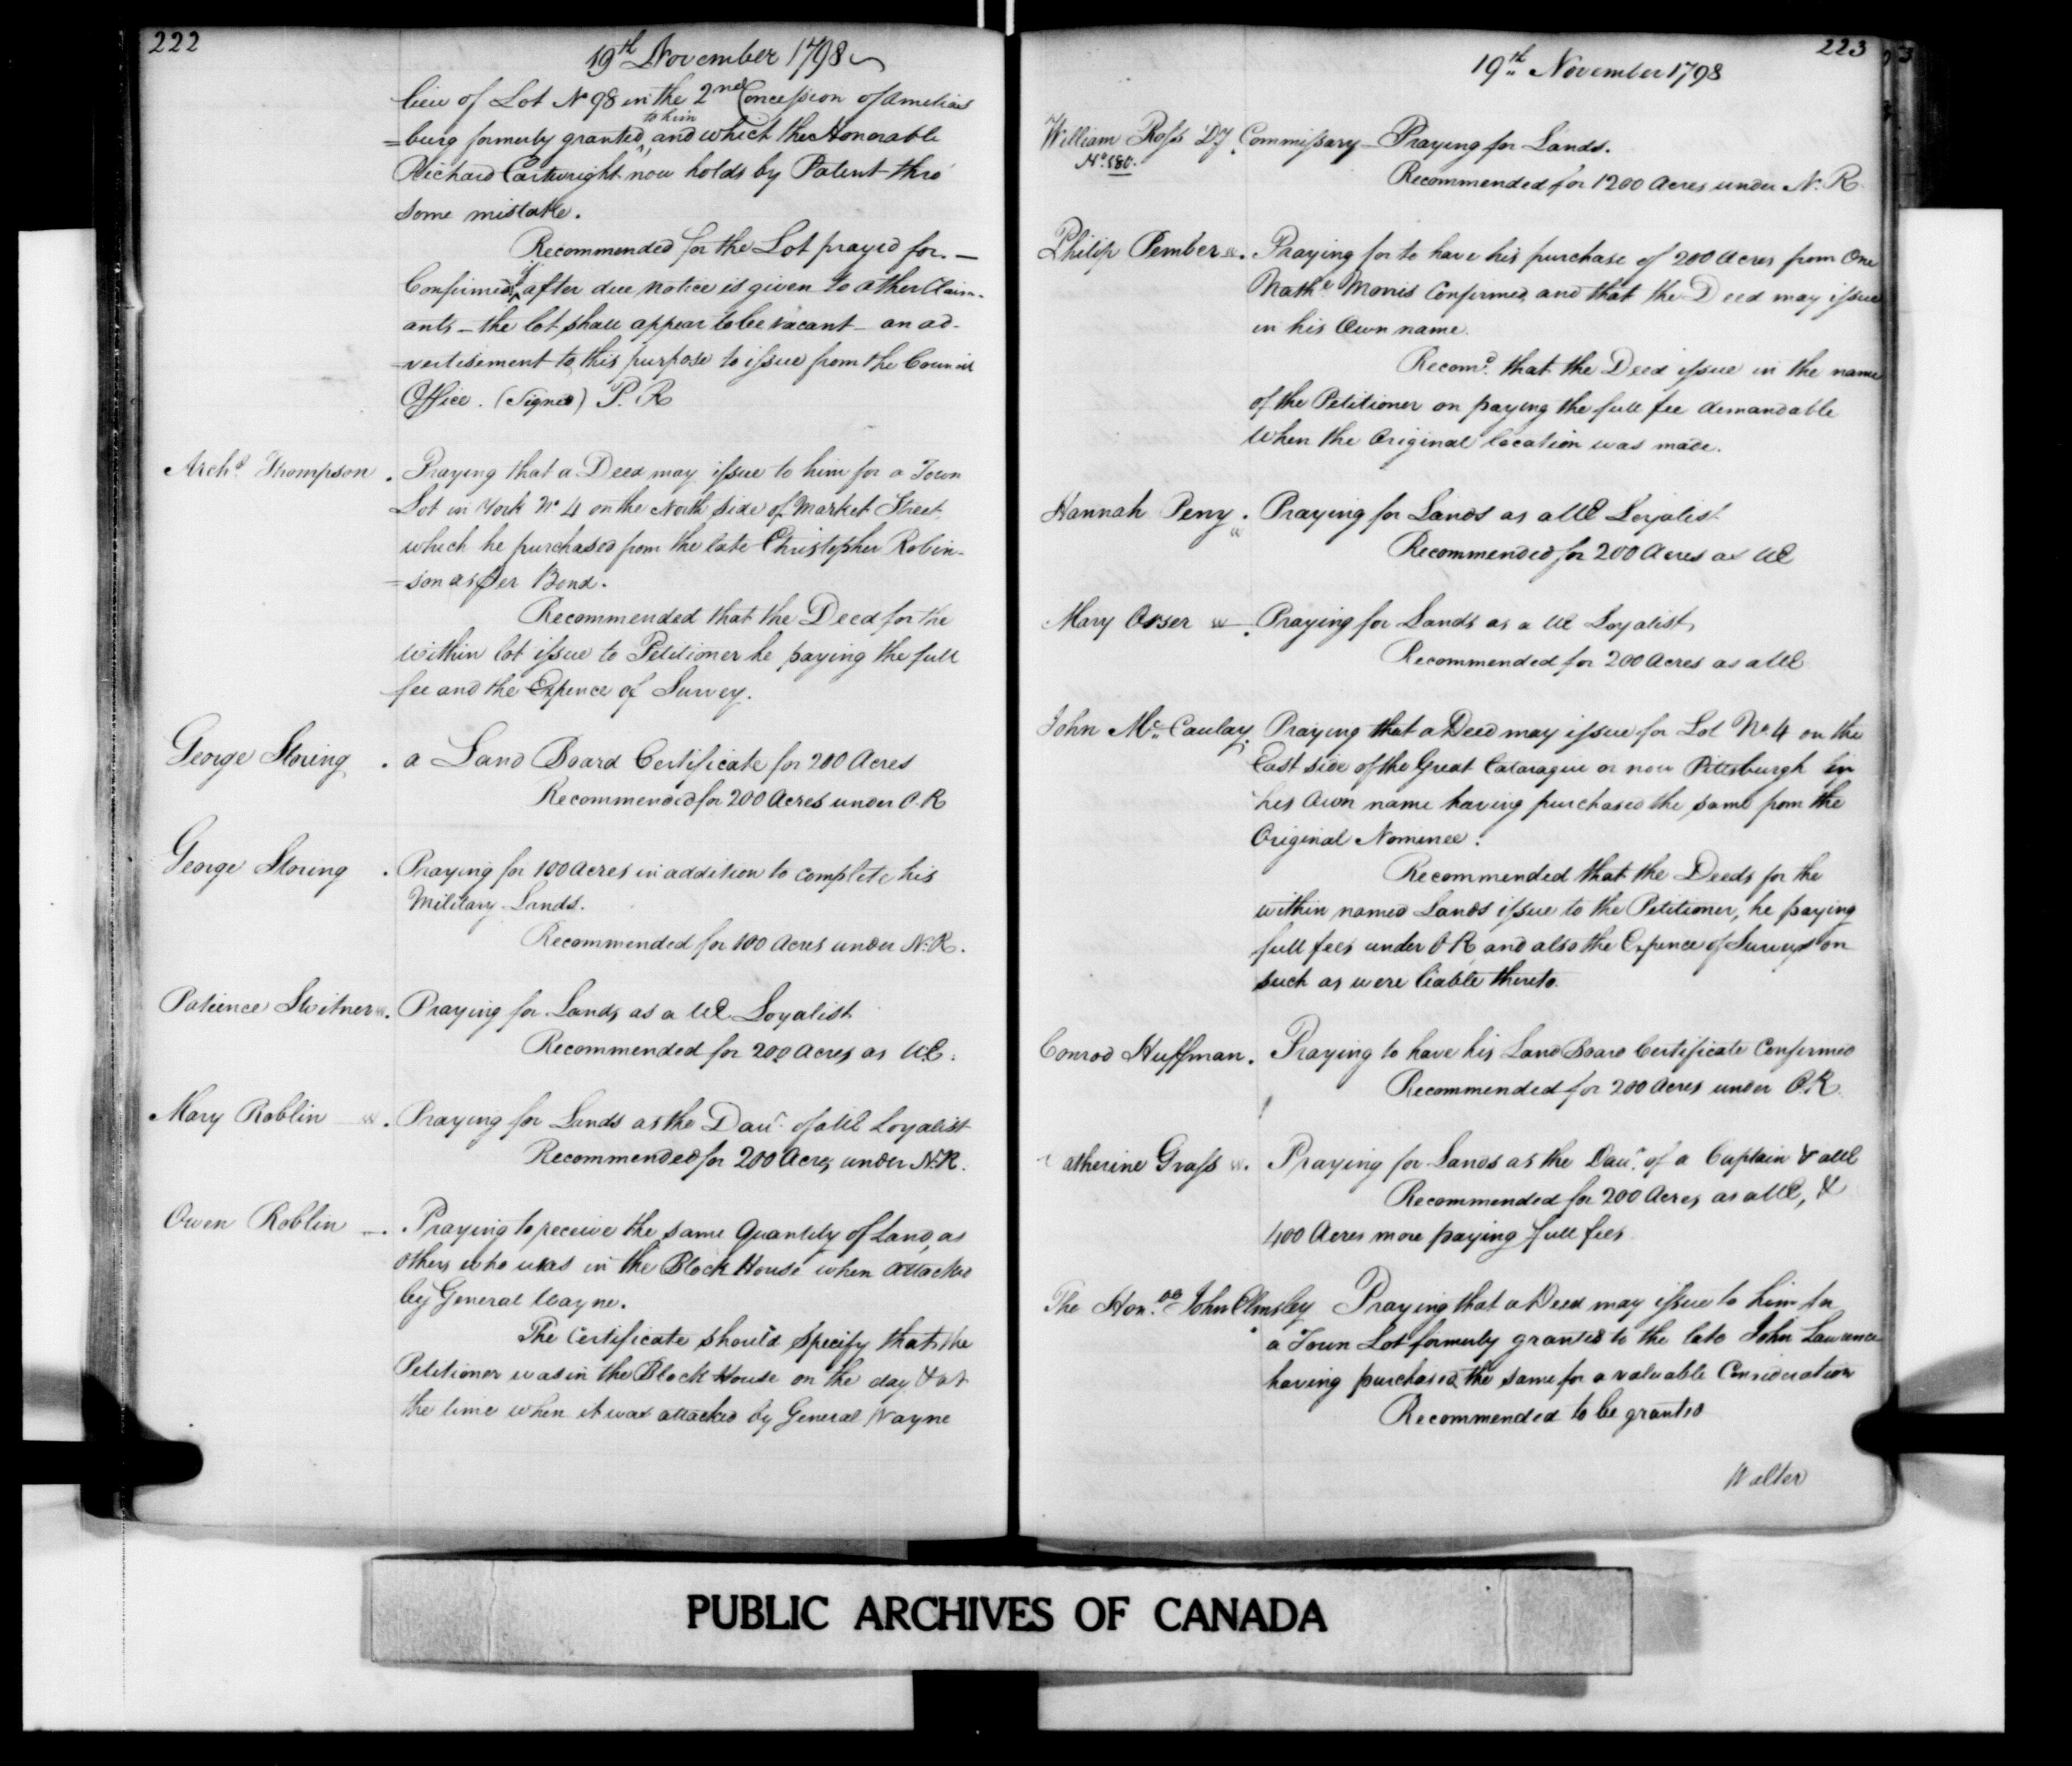 222
19th November 1798
lieu of Lot No 98 in the 2nd Concession of Amelias
=burg formerly granted to him and which the Honorable
Richard Cartwright now holds by Patent thro'
some mistake.
Recommended for the Lot prayed for. —
Confirmed if after due notice is given to other Claim-
ants — the lot shall appear to be vacant — an ad-
-vertisement to this purpose to issue from the Council
Office. (Signed) P. R
Archd Thompson . Praying that a Deed may issue to him for a Town
Lot in York No 4 on the North side of Market Street
which he purchased from the late Christopher Robin-
=son as per Bond.
Recommended that the Deed for the
within lot issue to Petitioner he paying the full
fee and the Expence of Survey.
George Storing . a Land Board Certificate for 200 Acres
Recommended for 200 Acres under O.R
George Storing . Praying for 100 Acres in addition to complete his
Military Lands.
Recommended for 100 Acres under N.R.
Patience Switner . Praying for Lands as a UE Loyalist
Recommended for 200 Acres as UE.
Mary Roblin . Praying for Lands as the Daur of a UE Loyalist
Recommended for 200 Acres under N.R.
Owen Roblin — . Praying to receive the same Quantity of Land, as
others who was in the Block House when attacked
by General Wayne.
The Certificate should specify that the
Petitioner was in the Block House on the day & at
the time when it was attacked by General Wayne
223
19th November 1798
William Ross Dy Commissary — Praying for Lands.
No 180.
Recommended for 1200 Acres under N. R
Philip Pember . Praying for to have his purchase of 200 Acres from One
Nathl Morris Confirmed and that the Deed may issue
in his Own name.
Recomd that the Deed issue in the name
of the Petitioner on paying the full fee demandable
When the Original location was made.
Hannah Perry . Praying for Lands as a UE Loyalist
Recommended for 200 Acres as UE
Mary Orser . Praying for Lands as a UE Loyalist,
Recommended for 200 Acres as a UE
John McCaulay . Praying that a Deed may issue for Lot No 4 on the
East side of the Great Cataraque or now Pittsburgh in
his Own name having purchased the same from the
Original Nominee.
Recommended that the Deeds for the
within named Lands issue to the Petitioner, he paying
full fees under O R, and also the Expence of Surveys on
such as were liable thereto.
Conrod Huffman . Praying to have his Land Board Certificate Confirmed
Recommended for 200 Acres under O.R.
Catherine Grass . Praying for Lands as the Daur of a Captain & a UE
Recommended for 200 Acres as a UE, &
400 Acres more paying full fees
The Honble John Elmsley Praying that a Deed may issue to him for
a Town Lot formerly granted to the late John Lawrence
having purchased the same for a valuable Consideration
Recommended to be granted
Walter
PUBLIC ARCHIVES OF CANADA